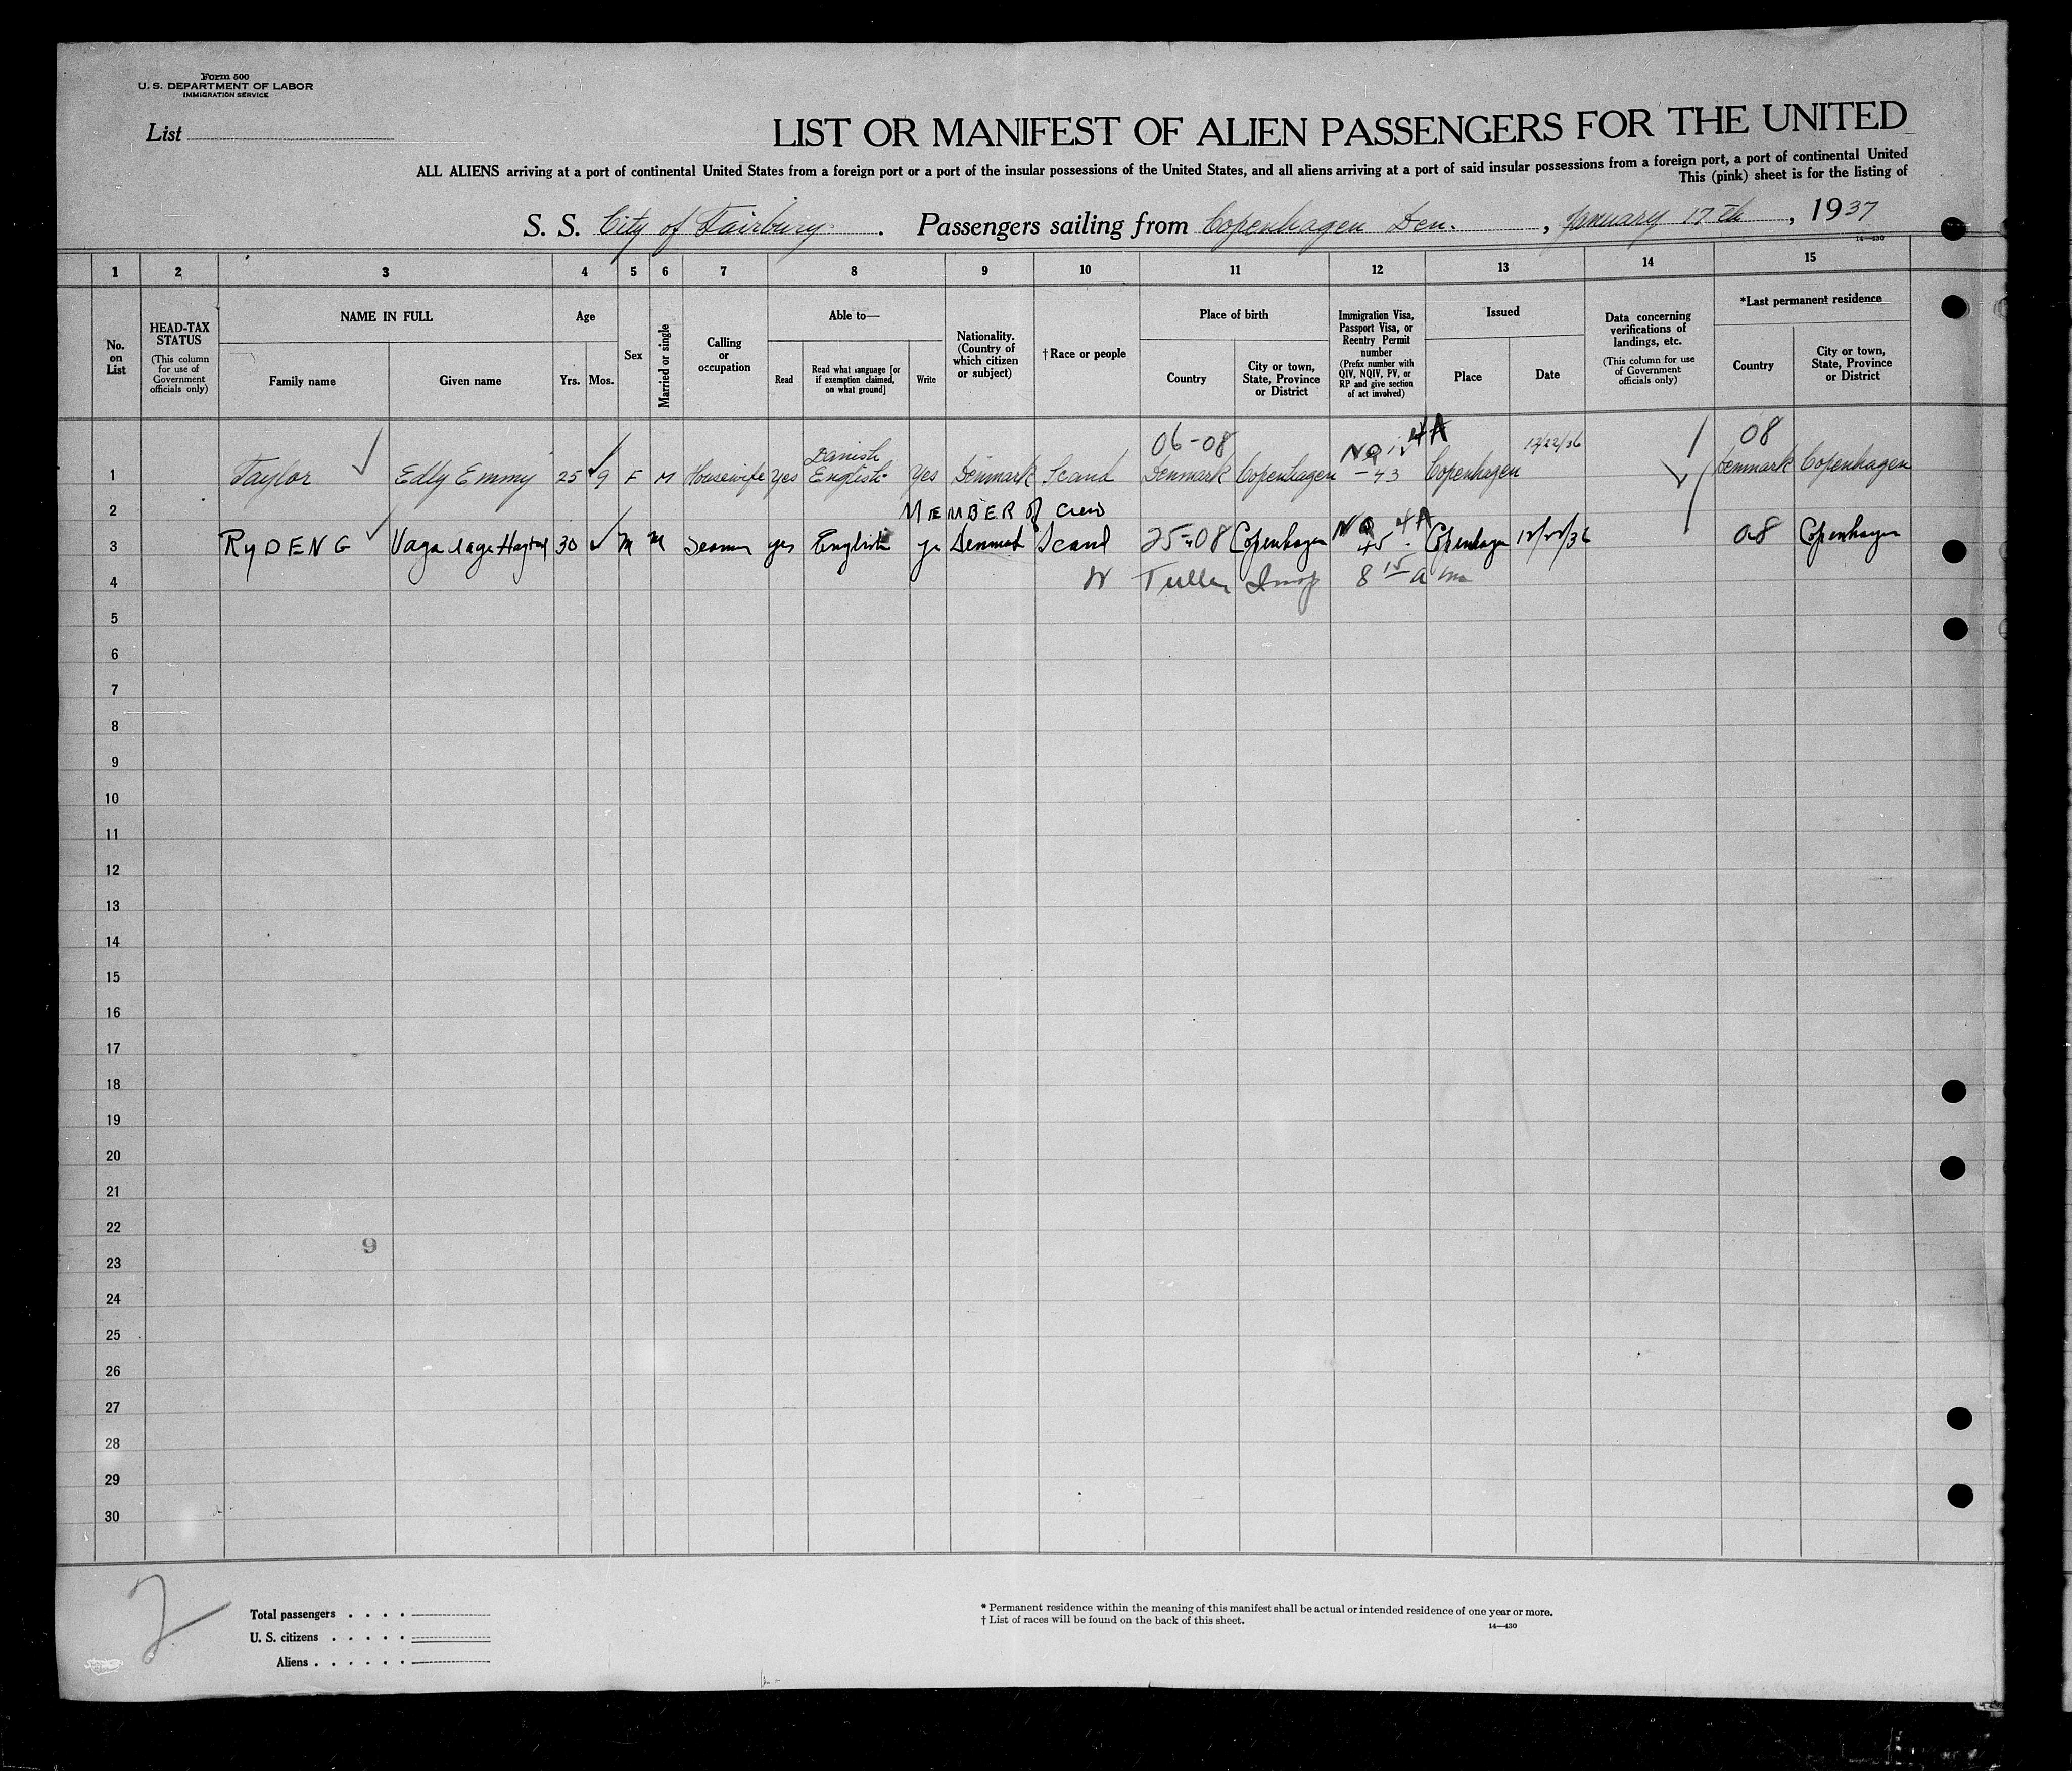 Form 500
U. S. DEPARTMENT OF LABOR
IMMIGRATION SERVICE
List
LIST OR MANIFEST OF ALIEN PASSENGERS FOR THE UNITED
ALL ALIENS arriving at a port of continental United States from a foreign port or a port of the insular possessions of the United States, and all aliens arriving at a port of said insular possessions from a foreign port, a port of continental United
This (pink) sheet is for the listing of
S. S. City of Fairbury. Passengers sailing from Copenhagen Den., January 17th, 1937
14—430
1 2 3 4 5 6 7 8 9 10 11 12 13 14 15
No. on List
HEAD-TAX STATUS
(This column for use of Government officials only)
NAME IN FULL
Family name
Given name
Age
Yrs.
Mos.
Sex
Married or single
Calling or occupation
Able to—
Read
Read what language [or if exemption claimed, on what ground]
Write
Nationality. (Country of which citizen or subject)
†Race or people
Place of birth
Country
City or town, State, Province or District
Immigration Visa, Passport Visa, or Reentry Permit number
(Prefix number with QIV, NQIV, PV, or RP and give section of act involved)
Issued
Place
Date
Data concerning verifications of landings, etc.
(This column for use of Government officials only)
*Last permanent residence
Country
City or town, State, Province or District
06-08 4A 12/22/36 08
Danish
1 Taylor Edly Emmy 25 9 F M Housewife yes English yes Denmark Scand Denmark Copenhagen NQIV -43 Copenhagen Denmark Copenhagen
2 MEMBER of crew
4A
3 RyDENG 30 M M Seaman yes English ye Denmark Scand 25-08 Copenhagen NQ 45 Copenhagen 12/22/36 08 Copenhagen
4 Insp 8 15 a m
5
6
7
8
9
10
11
12
13
14
15
16
17
18
19
20
21
22
9
23
24
25
26
27
28
29
30
2
Total passengers
U. S. citizens
Aliens
* Permanent residence within the meaning of this manifest shall be actual or intended residence of one year or more.
† List of races will be found on the back of this sheet.
14—430